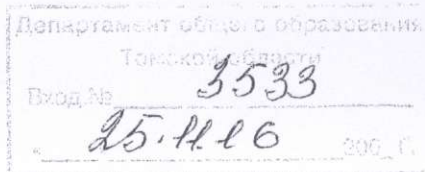 Департамент общего образования
Томской области
Вход.№ 3533
« 25.11.16 200_ г.